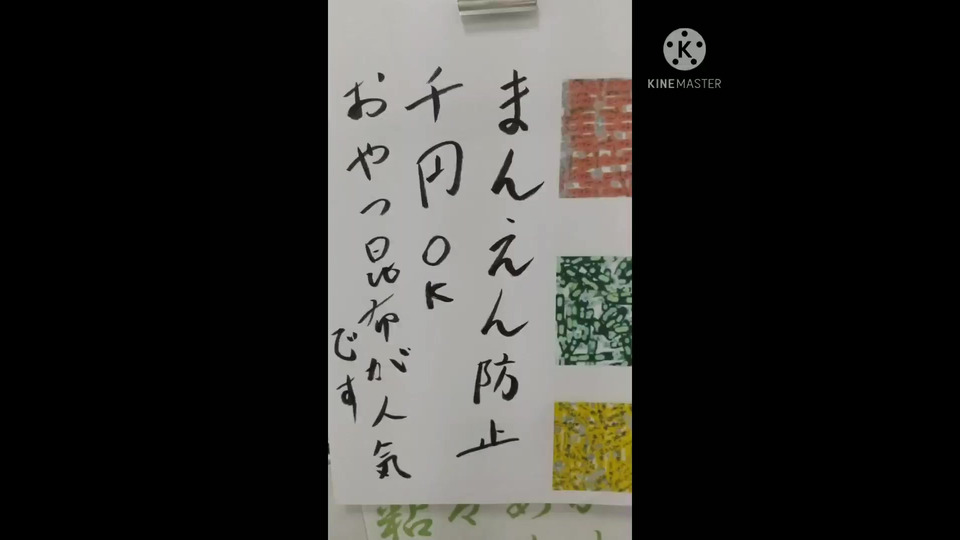 まんえん防止
千円OK
おやつ昆布が人気
です
KINEMASTER